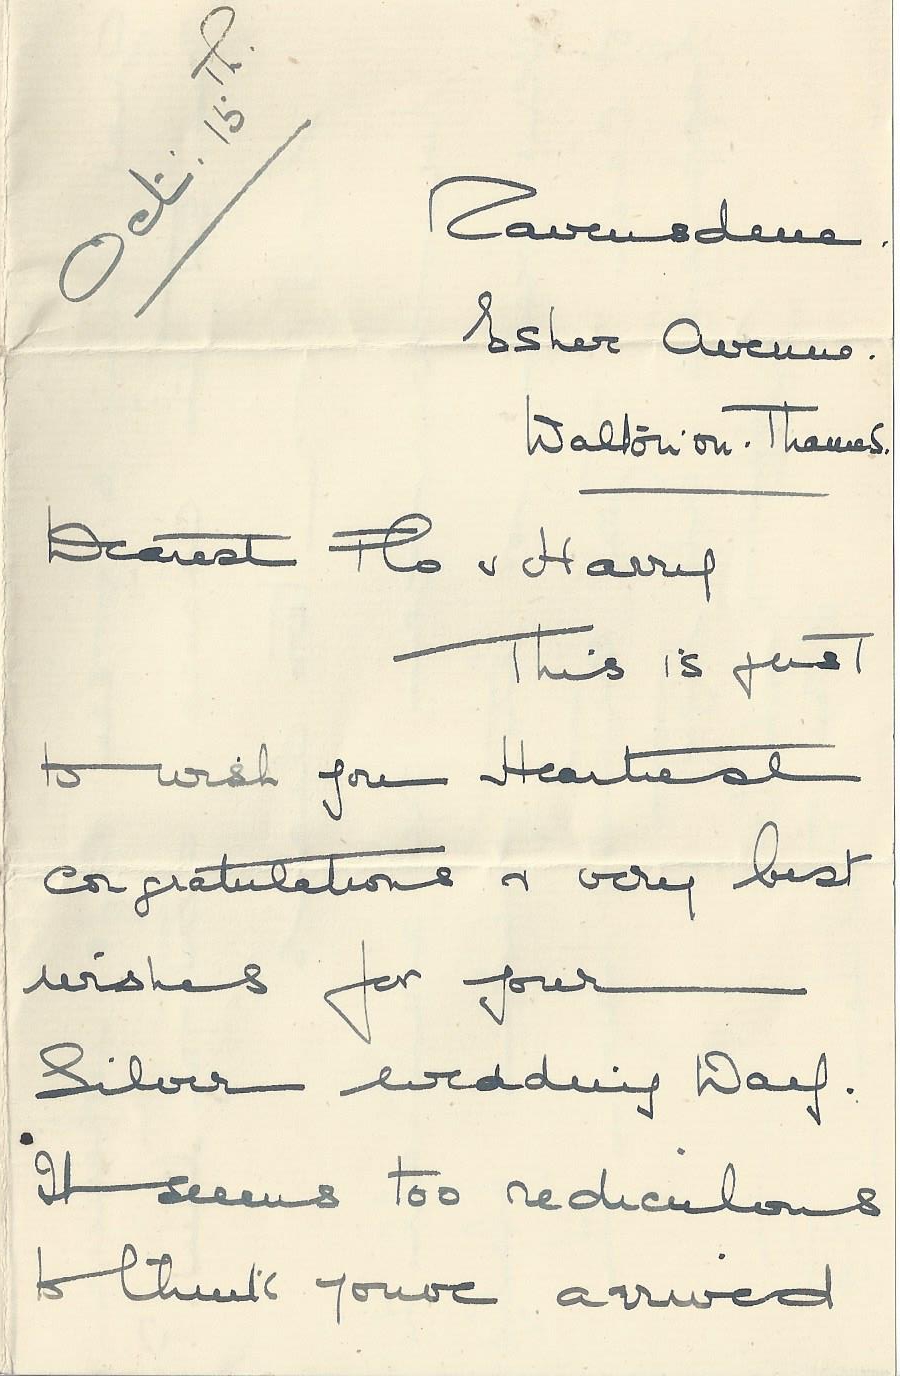 Oct: 15 Th.
Ravensdene.
Esher Avenue.
Walton on. Thames.
Dearest Flo & Harry
This is just
to wish you Heartiest
congratulations & very best
wishes for your
Silver wedding Day.
It seems too rediculous
to think youve arrived